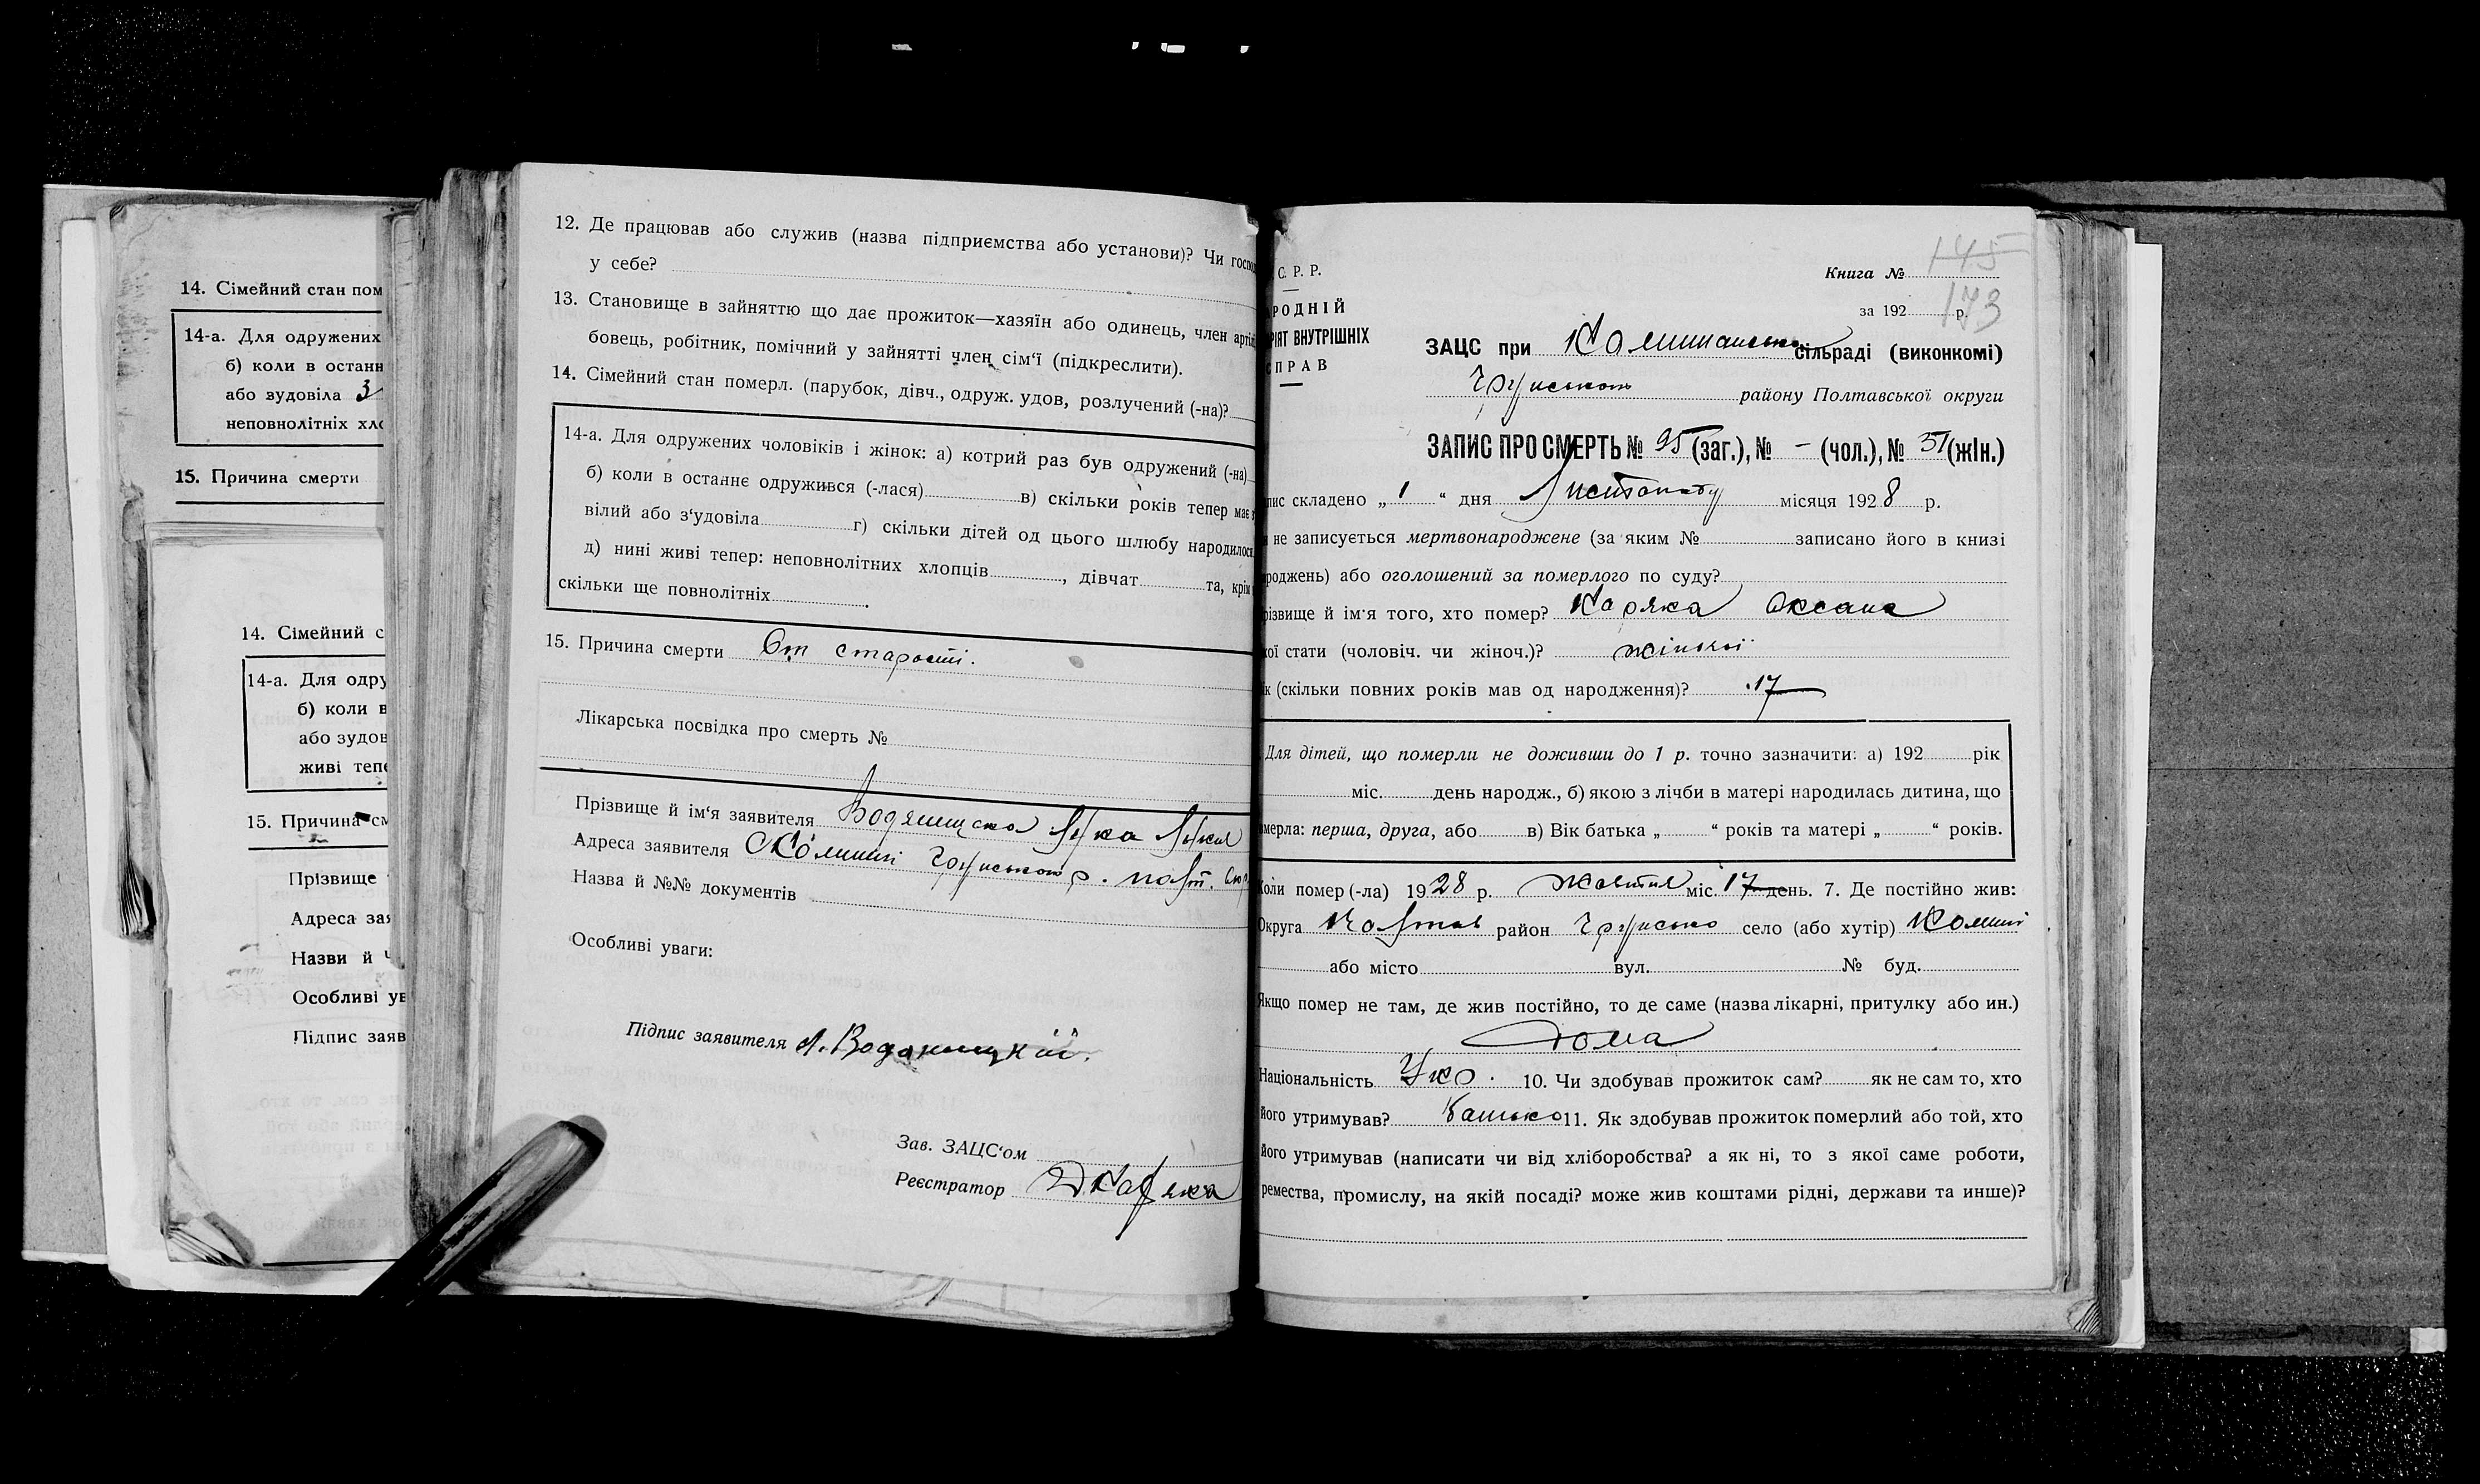 14. Сімейний стан пом
14-а. Для одружених
б) коли в останн
або зудовіла 3
неповнолітніх хло
15. Причина смерти
14. Сімейний с
14-а. Для одру
б) коли в
або зудов
живі тепе
15. Причина см
Прізвище
Адреса зая
Назви й
Особливі ув
Підпис заяв
12. Де працював або служив (назва підприємства або установи)? Чи госпо
у себе?
13. Становище в зайняттю що дає прожиток—хазяїн або одинець, член артіл
бовець, робітник, помічний у зайнятті член сім'ї (підкреслити).
14. Сімейний стан померл. (парубок, дівч., одруж. удов, розлучений (-на)?
14-а. Для одружених чоловіків і жінок: а) котрий раз був одружений (-на)
б) коли в останнє одружився (-лася) в) скільки років тепер має з
вілий або з'удовіла г) скільки дітей од цього шлюбу народилося
д) нині живі тепер: неповнолітних хлопців , дівчат та, крім
скільки ще повнолітніх .
15. Причина смерти От старости.
Лікарська посвідка про смерть №
Прізвище й ім'я заявителя Лука
Адреса заявителя р.
Назва й №№ документів
Особливі уваги:
Підпис заявителя
Зав. ЗАЦС'ом
Реєстратор Каряка
С. Р. Р.
РОДНІЙ
РІЯТ ВНУТРІШНІХ
СПРАВ
Книга № 145
за 192 р. 173
ЗАЦС при сільраді (виконкомі)
району Полтавської округи
ЗАПИС ПРО СМЕРТЬ № 95 (заг.), № – (чол.), № 51 (жін.)
пис складено „ 1 “ дня Листопаду місяця 192 8 р.
не записується мертвонароджене (за яким № записано його в книзі
роджень) або оголошений за померлого по суду?
різвище й ім'я того, хто помер? Каряка Оксана
кої стати (чоловіч. чи жіноч.)? жіночої
ік (скільки повних років мав од народження)? 17
Для дітей, що померли не доживши до 1 р. точно зазначити: а) 192 рік
міс. день народж., б) якою з лічби в матері народилась дитина, що
мерла: перша, друга, або в) Вік батька „ “ років та матері „ “ років.
Коли помер (-ла) 19 28 р. Жовтня міс. 17 день. 7. Де постійно жив:
Округа Полтав район село (або хутір)
або місто вул. № буд.
Якщо помер не там, де жив постійно, то де саме (назва лікарні, притулку або ин.)
Дома
Національність Укр. 10. Чи здобував прожиток сам? як не сам то, хто
його утримував? Батько 11. Як здобував прожиток померлий або той, хто
його утримував (написати чи від хліборобства? а як ні, то з якої саме роботи,
ремества, промислу, на якій посаді? може жив коштами рідні, держави та инше)?